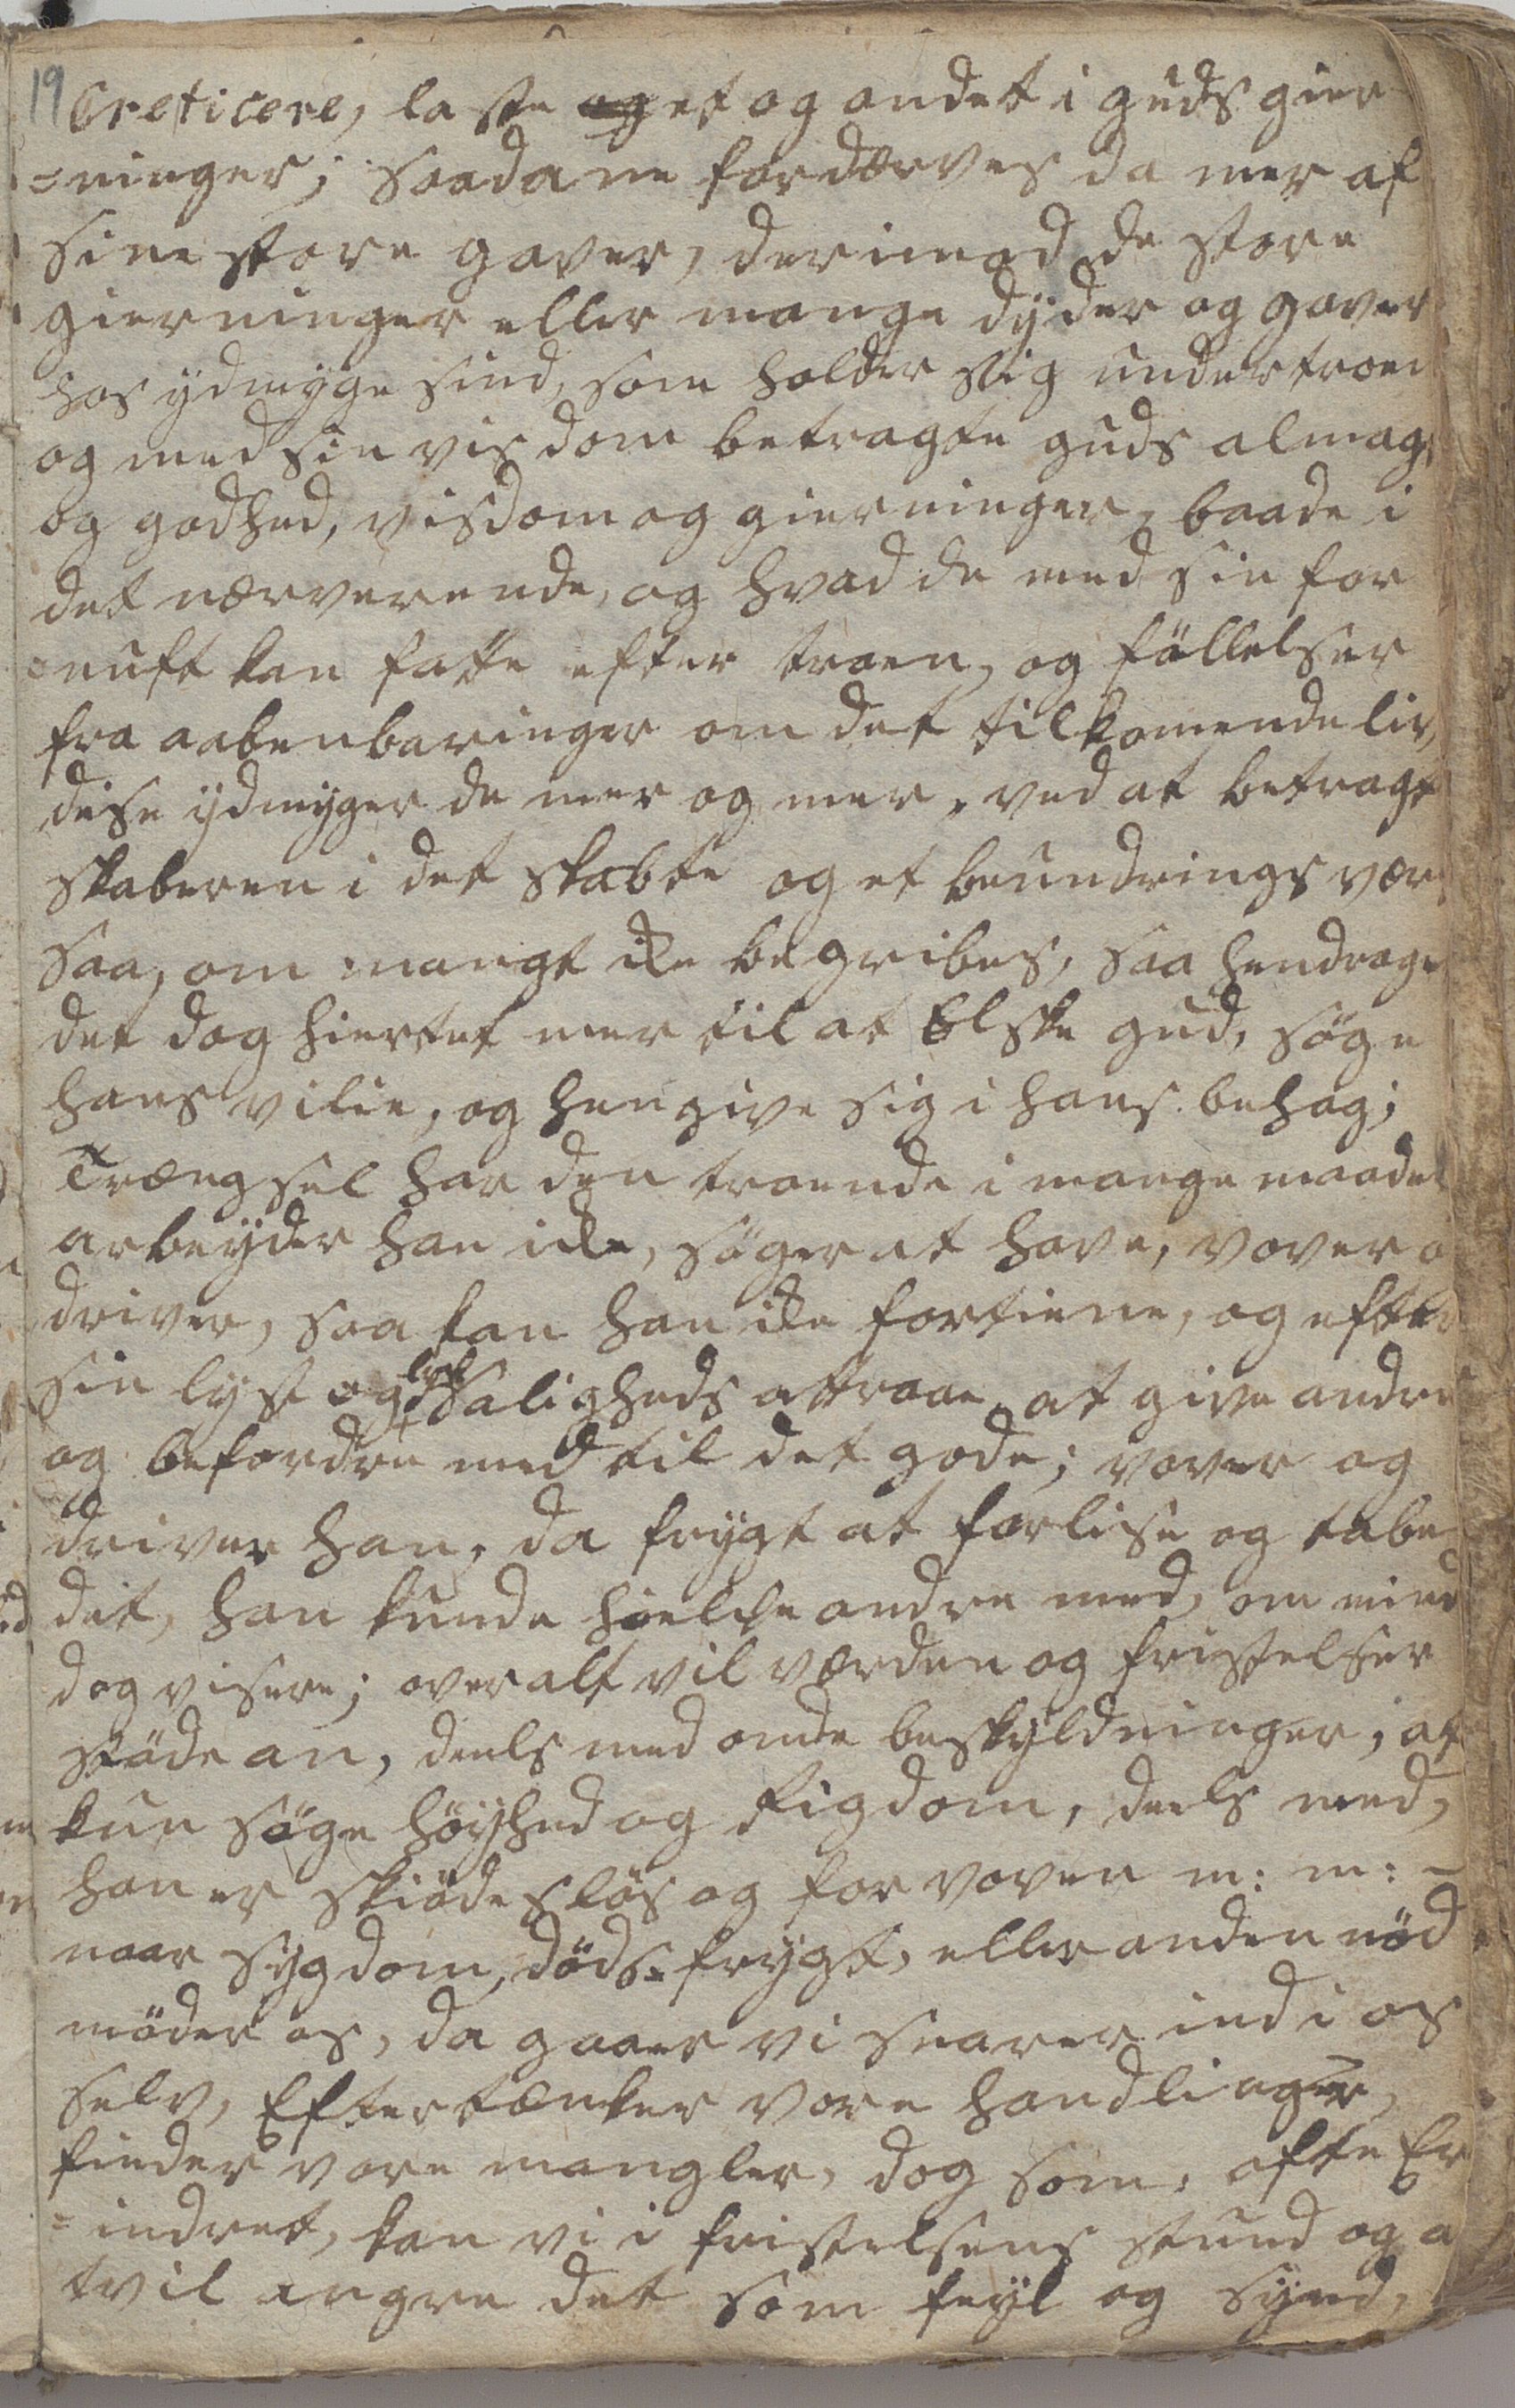 19
Creticere, laste og et og andet i guds gier
=ninger; saadane fordærves da mer af
sine store gaver, derimod de store
gierninger eller mange dyder og gaver
hos ydmyge sind, som holder sig under troen
og med sin visdom betragte guds almagt
og godhed, visdom og gierninger, baade i
det nærverende, og hvad de med sin for
=nuft kan fatte efter troen, og föllelser
fra aabenbaringer om det tilkomende liv,
disse ydmyger de mer og mer, ved at betragt
skaberen i det skabte og et beundrings vær
saa, om mangt ike begribes, saa hendrage
det dog hiertet mer til at Elske gud, søge
hans vilie, og hengive sig i hans behag;
Trængsel har den troende i mange maader
arbeyder han ike, søger at have, vover o
driver, saa kan han ike fortiene, og efter
sin lyst og lyk Saligheds attraae, at give andre
og befordre med til det gode; vover og
driver han, da frygt at forlise og tabe
det, han kunde hielpe andre med, om mind
dog visere; overalt vil værden og fristelser
støde an, deels med onde beskyldninger, at
kun søge höyhed og rigdom, deels med,
han er skiødesløs og forvoven m: m: –
naar sygdom, döds-frygt, eller anden nöd
möder os, da gaaer vi snarer ind i os
selv, Eftertænker vore handlinger,
finder vore mangler, dog som, ofte Er
=indret, kan vi i fristelsens stund og a
tvil angre det som feyl og synd,